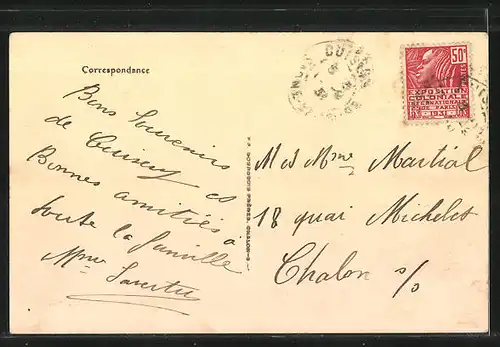 Correspondance
Bons Souvenirs
de Cuisery et
Bonnes amitiés à
toute la famille
Mme
M et Mme Martial
18 quai Michelet
Chalon s/s
50c
EXPOSITION
COLONIALE
INTERNATIONALE
PARIS 1931